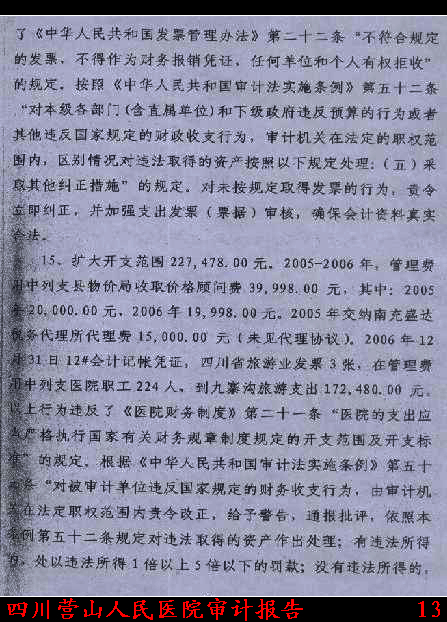 了《中华人民共和国发票管理办法》第二十二条“不符合规定
的发票，不得作为财务报销凭证，任何单位和个人有权拒收”
的规定。按照《中华人民共和国审计法实施条例》第五十二条
“对本级各部门(含直属单位)和下级政府违反预算的行为或者
其他违反国家规定的财政收支行为，审计机关在法定的职权范
围内，区别情况对违法取得的资产按照以下规定处理：（五）采
取其他纠正措施”的规定。对未按规定取得发票的行为，责令
立即纠正，并加强支出发票（票据）审核，确保会计资料真实
合法。
15、扩大开支范围 227,478.00 元。2005-2006 年，管理费
用中列支县物价局收取价格顾问费 39,998.00 元，其中：2005
年20,000.00 元，2006 年 19,998.00 元。2005 年交纳南充盛达
税务代理所代理费 15,000.00 元（未见代理协议）。2006 年 12
月31 日 12#会计记帐凭证，四川省旅游业发票 3 张，在管理费
用中列支医院职工 224 人，到九寨沟旅游支出 172,480.00 元。
以上行为违反了《医院财务制度》第二十一条“医院的支出应
当严格执行国家有关财务规章制度规定的开支范围及开支标
准”的规定。根据《中华人民共和国审计法实施条例》第五十
条“对被审计单位违反国家规定的财务收支行为，由审计机
关在法定职权范围内责令改正，给予警告，通报批评，依照本
条例第五十二条规定对违法取得的资产作出处理；有违法所得
的，处以违法所得 1 倍以上 5 倍以下的罚款；没有违法所得的，
四川营山人民医院审计报告 13